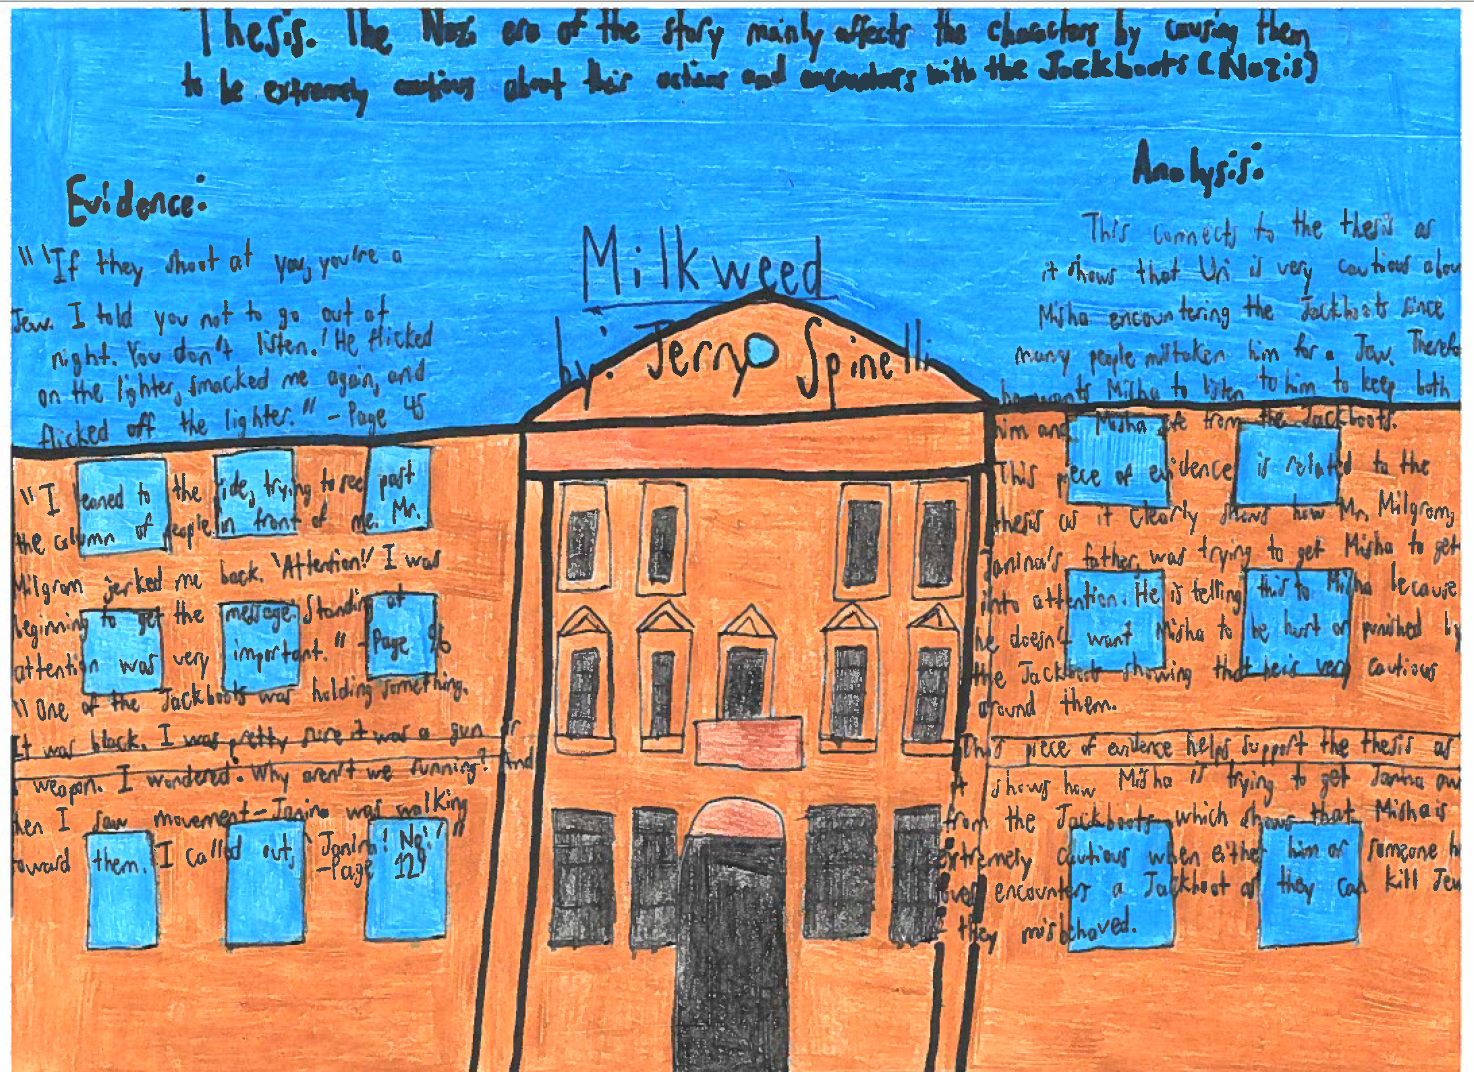 Thesis. The Nazi era of the story mainly affects the characters by causing them
to be extremely cautious about their actions and encounters with the Jackboots (Nazis)
Evidence:
"'If they shoot at you, you're a
Jew. I told you not to go out at
night. You don't listen.' He flicked
on the lighter, smacked me again, and
flicked off the lighter." - Page 45
"I leaned to the side, trying to see past
the column of people in front of me. Mr.
Milgrom jerked me back. 'Attention!' I was
beginning to get the message: Standing at
attention was very important." - Page 96
"One of the Jackboots was holding something.
It was black. I was pretty sure it was a gun or
weapon. I wondered: Why aren't we running? And
hen I saw movement - Janina was walking
toward them. I called out, 'Janina! No!'"
- Page 129
Milkweed
by: Jerry Spinelli
Analysis:
This connects to the thesis as
it shows that Uri is very cautious abou
Misha encountering the Jackboots since
many people mistaken him for a Jew. Therefo
he wants Misha to listen to him to keep both
him and Misha safe from the Jackboots.
This piece of evidence is related to the
thesis as it clearly shows how Mr. Milgrom,
Janina's father, was trying to get Misha to get
into attention. He is telling this to Misha because
he doesn't want Misha to be hurt or punished by
the Jackboots showing that he is very cautious
around them.
This piece of evidence helps support the thesis as
it shows how Misha is trying to get Janina aw
from the Jackboots which shows that Misha is
extremely cautious when either him or someone he
loves encounters a Jackboot as they can kill Jew
they misbehaved.